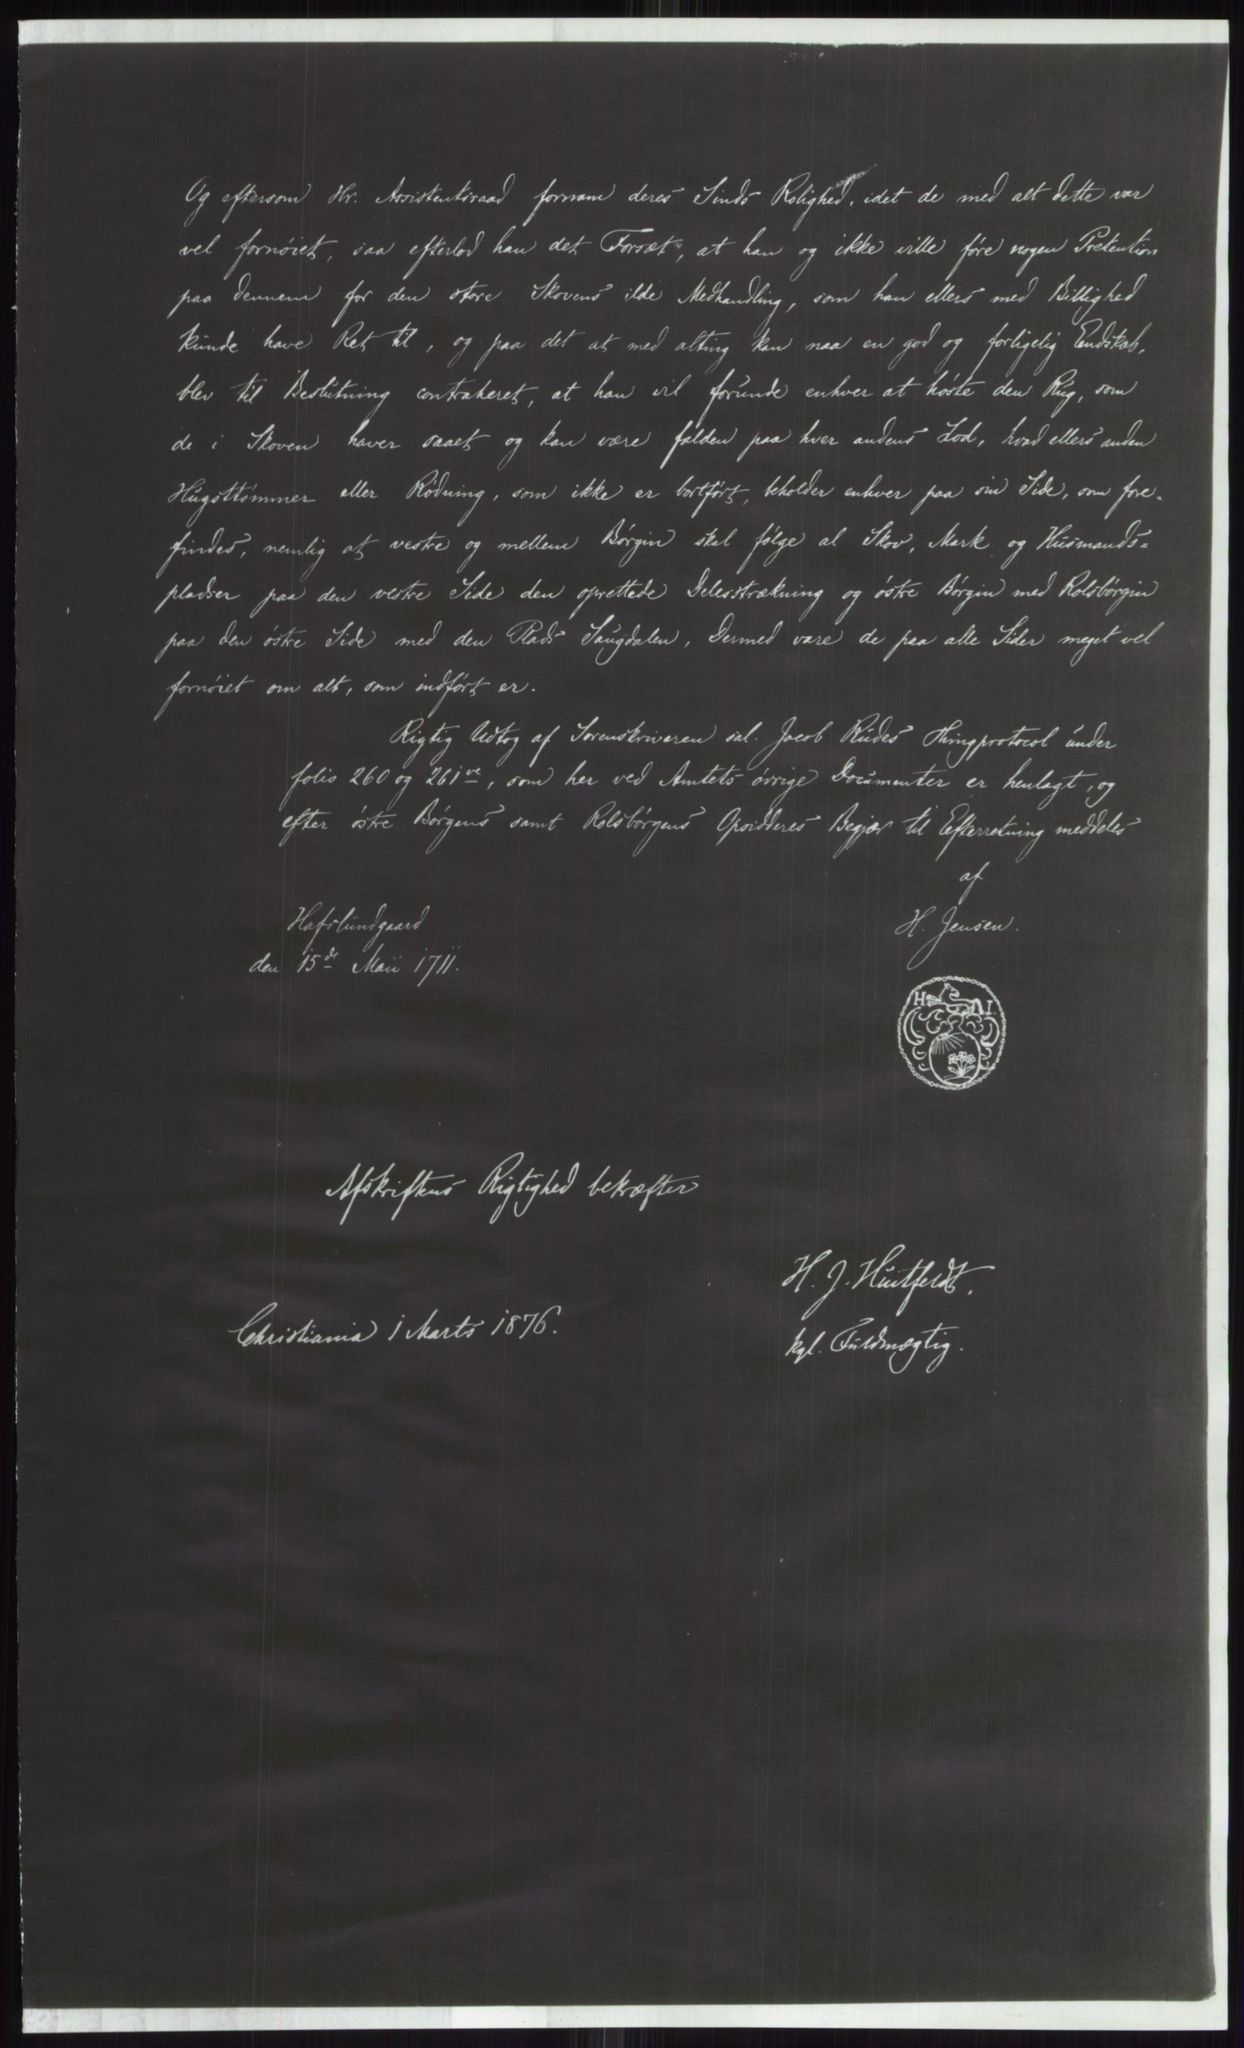 Og eftersom Hr. Assistentsraad fornam deres Sinds Rolighed, idet de med alt dette var
vel fornöiet, saa efterlod han det Forsæt, at han og ikke ville före nogen Prætention
paa dennem for den store Skovens ilde Medhandling, som han ellers med Billighed
kunde have Ret til, og paa det at med alting kan naa en god og forligelig Endskab,
blev til Beslutning contraheret, at han vil forunde enhver at höste den Rug, som
de i Skoven haver saaet og kan være falden paa hver andens Lod, hvad ellers anden
Hugsttömmer eller Rödning, som ikke er bortfört, beholder enhver paa sin Side, som fore-
findes, nemlig at vestre og mellem Börgin skal fölge al Skov, Mark og Husmands=
pladser paa den vestre Side den oprettede Delesstrækning og östre Börgin med Rolsbörgin
paa den östre Side med den Plads Saugdalen, Dermed vare de paa alle Sider meget vel
fornöiet om alt, som indfört er.
Rigtig Udtog af Sorenskriveren sal. Jacob Rudes Thingprotocol under
folio 260 og 261ve, som her ved Amtets övrige Documenter er henlagt, og
efter östre Börgens samt Rolsbörgens Opsidderes Begjær til Efterretning meddeles
af
Hafslundgaard H. Jensen.
den 15de Maii 1711.
H I.
Afskriftens Rigtighed bekræfter
H. J. Huitfeldt,
Christiania 1 Marts 1876.
kgl. Fuldmægtig.